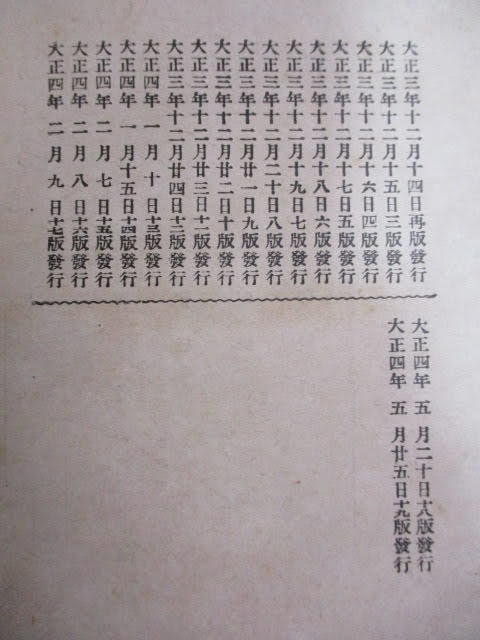 大正三年十二月十四日再版發行
大正三年十二月十五日三版發行
大正三年十二月十六日四版發行
大正三年十二月十七日五版發行
大正三年十二月十八日六版發行
大正三年十二月十九日七版發行
大正三年十二月二十日八版發行
大正三年十二月廿一日九版發行
大正三年十二月廿二日十版發行
大正三年十二月廿三日十一版發行
大正三年十二月廿四日十二版發行
大正四年一月十日十三版發行
大正四年一月十五日十四版發行
大正四年二月七日十五版發行
大正四年二月八日十六版發行
大正四年二月九日十七版發行
大正四年五月二十日十八版發行
大正四年五月廿五日十九版發行